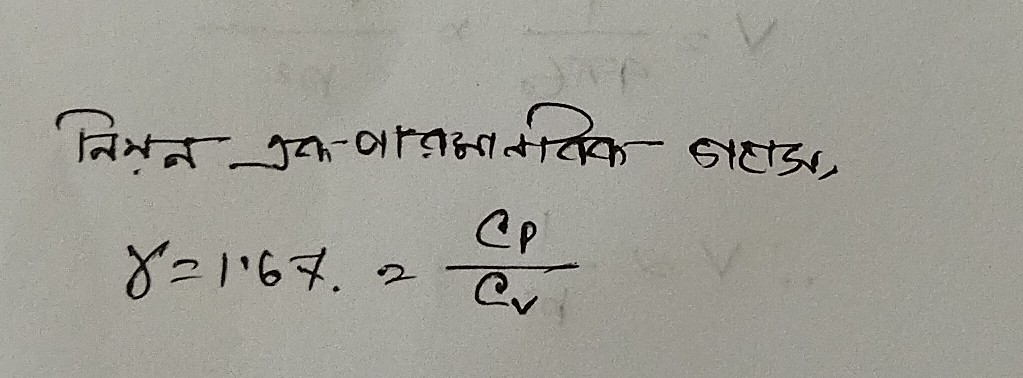 নিয়ন এক-পারমাণবিক গ্যাস,
γ = 1.67. = Cp / Cv